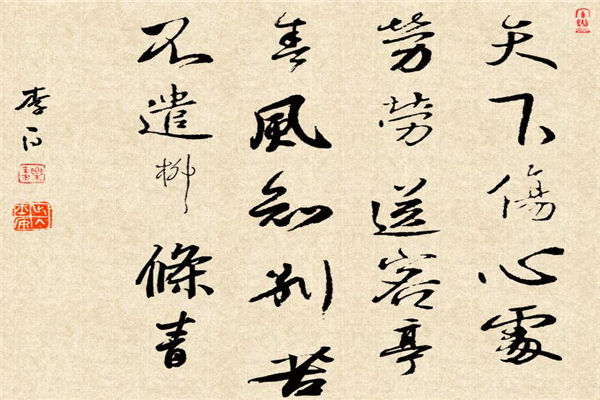 天下傷心處
勞勞送客亭
春風知別苦
不遣柳條青
李